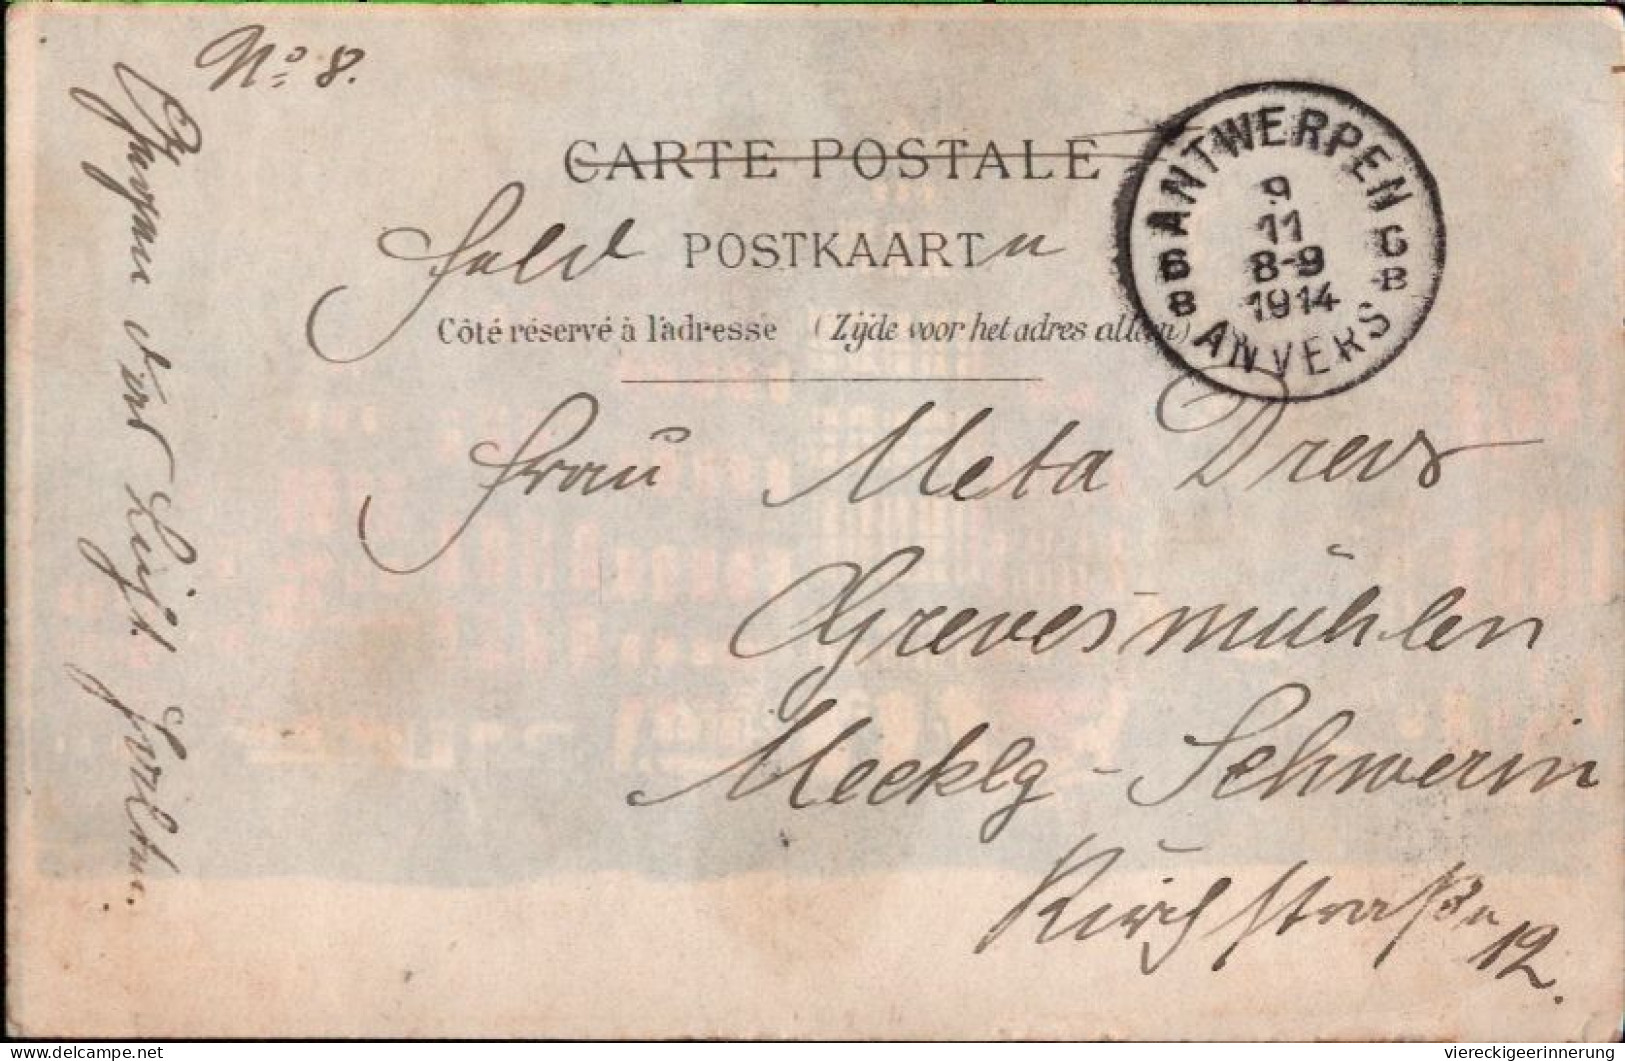 No 8.
CARTE POSTALE
Feld POSTKAART
Côté réservé à l'adresse (Zijde voor het adres alleen)
ANTWERPEN
9
11
8-9
1914
6 B
ANVERS
Frau Meta Drews
Grevesmühlen
Mecklg - Schwerin
Kirchstraße 12.
viereckigeerinnerung
delcampe.net